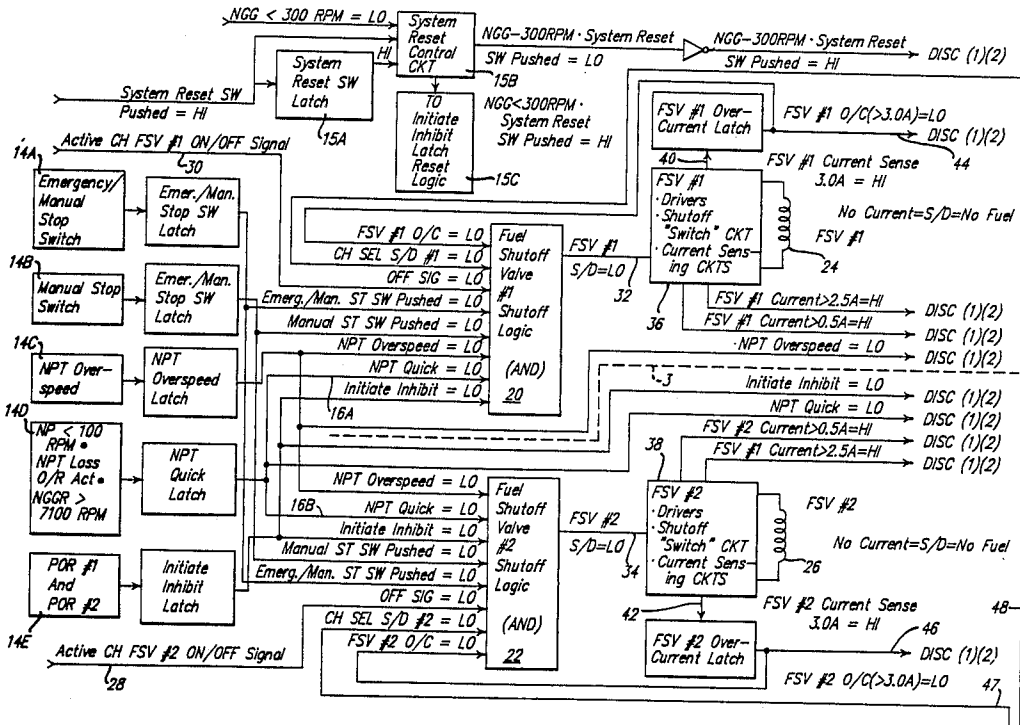 NGG < 300 RPM = LO
System
Reset
Control
CKT
15B
NGG-300RPM · System Reset
SW Pushed = LO
NGG-300RPM · System Reset
SW Pushed = HI
DISC (1)(2)
HI
System
Reset SW
Latch
15A
System Reset SW
Pushed = HI
TO
Initiate
Inhibit
Latch
Reset
Logic
15C
NGG<300RPM·
System Reset
SW Pushed = HI
FSV #1 Over-
Current Latch
FSV #1 O/C(>3.0A)=LO
DISC (1)(2)
44
40
FSV #1 Current Sense
3.0A = HI
Active CH FSV #1 ON/OFF Signal
30
14A
Emergency/
Manual
Stop
Switch
Emer./Man.
Stop SW
Latch
14B
Manual Stop
Switch
Emer./Man.
Stop SW
Latch
14C
NPT Over-
speed
NPT
Overspeed
Latch
14D
NP < 100
RPM •
NPT Loss
O/R Act •
NGGR >
7100 RPM
NPT
Quick
Latch
POR #1
And
POR #2
14E
Initiate
Inhibit
Latch
Active CH FSV #2 ON/OFF Signal
28
FSV #1 O/C = LO
CH SEL S/D #1 = LO
OFF SIG = LO
Emerg./Man. ST SW Pushed = LO
Manual ST SW Pushed = LO
NPT Overspeed = LO
NPT Quick = LO
Initiate Inhibit = LO
16A
Fuel
Shutoff
Valve
#1
Shutoff
Logic
(AND)
20
FSV #1
S/D=LO
32
FSV #1
·Drivers
·Shutoff
"Switch" CKT
·Current Sens-
ing CKTS
36
No Current=S/D=No Fuel
FSV #1
24
FSV #1 Current>2.5A=HI
DISC (1)(2)
FSV #1 Current>0.5A=HI
DISC (1)(2)
·NPT Overspeed = LO
DISC (1)(2)
3
Initiate Inhibit = LO
DISC (1)(2)
NPT Quick = LO
DISC (1)(2)
FSV #2 Current>0.5A=HI
DISC (1)(2)
FSV #1 Current>2.5A=HI
DISC (1)(2)
38
NPT Overspeed = LO
16B
NPT Quick = LO
Initiate Inhibit = LO
Manual ST SW Pushed = LO
Emerg./Man. ST SW Pushed = LO
OFF SIG = LO
CH SEL S/D #2 = LO
FSV #2 O/C = LO
Fuel
Shutoff
Valve
#2
Shutoff
Logic
(AND)
22
FSV #2
S/D=LO
34
FSV #2
·Drivers
·Shutoff
"Switch" CKT
·Current Sens-
ing CKTS
FSV #2
No Current=S/D=No Fuel
26
42
FSV #2 Current Sense
3.0A = HI
48
FSV #2 Over-
Current Latch
46
DISC (1)(2)
FSV #2 O/C(>3.0A)=LO
47